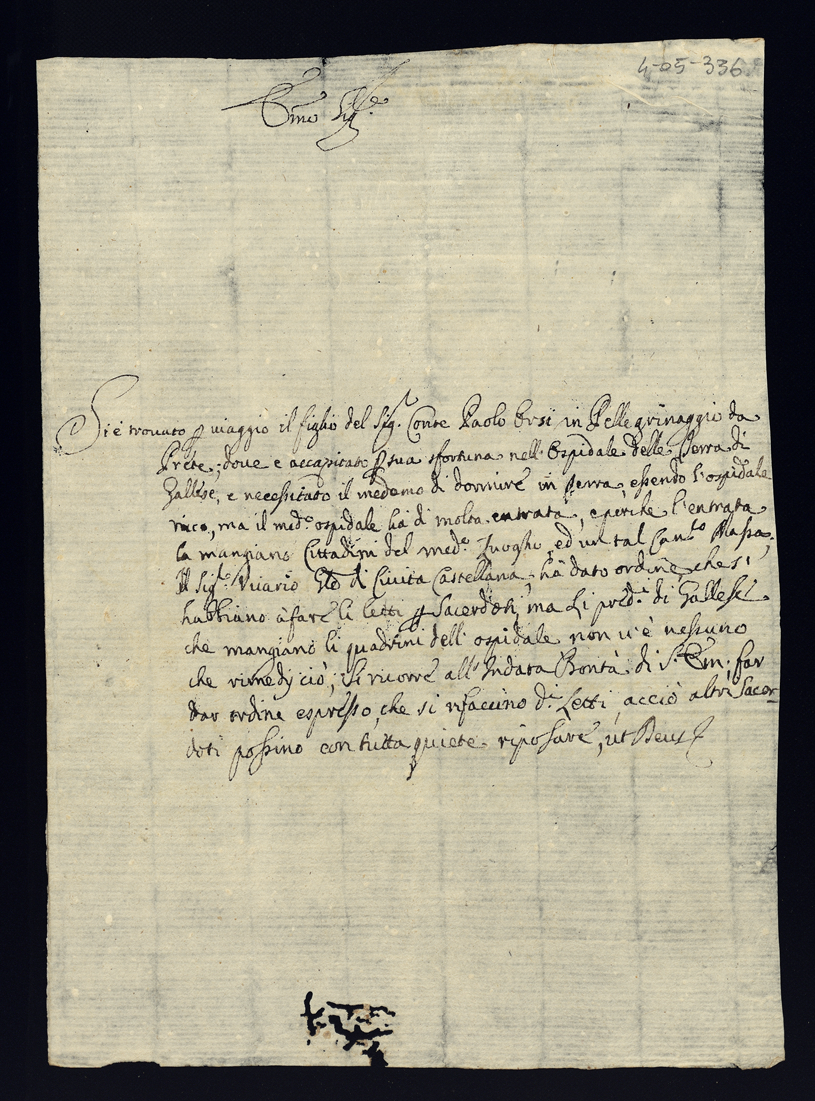 4-05-336
Em̃o Sig.re
Si è trovato ꝑ viaggio il figlio del Sig.r Conte Paolo Orsi in Pellegrinaggio da
Prete; dove e accapitato ꝑ sua sfortuna nell'Ospidale delle Terra di
Gallese, e necessitato il medemo di dormire in terra, essendo l'ospidale
ricco, ma il med.o ospidale ha di molta entrata, e perche l'entrata
la mangiano Cittadini del med.o Luogho, ed un tal Can.co Massa,
Il Sig.r Vicario Gñle di Civita Castellana, hà dato ordine, che s'
habbiano à fare li letti ꝑ Sacerdoti, ma li pred.i di Gallese
che mangiano li quadrini dell'ospidale non v'è nessuno
che rimedij ciò; Si ricorre all' Innata Bontà di S. Em. far
dar ordine espresso, che si rifaccino d.i Letti, acciò altri Sacer-
doti possino con tutta quiete riposare, ut Deus